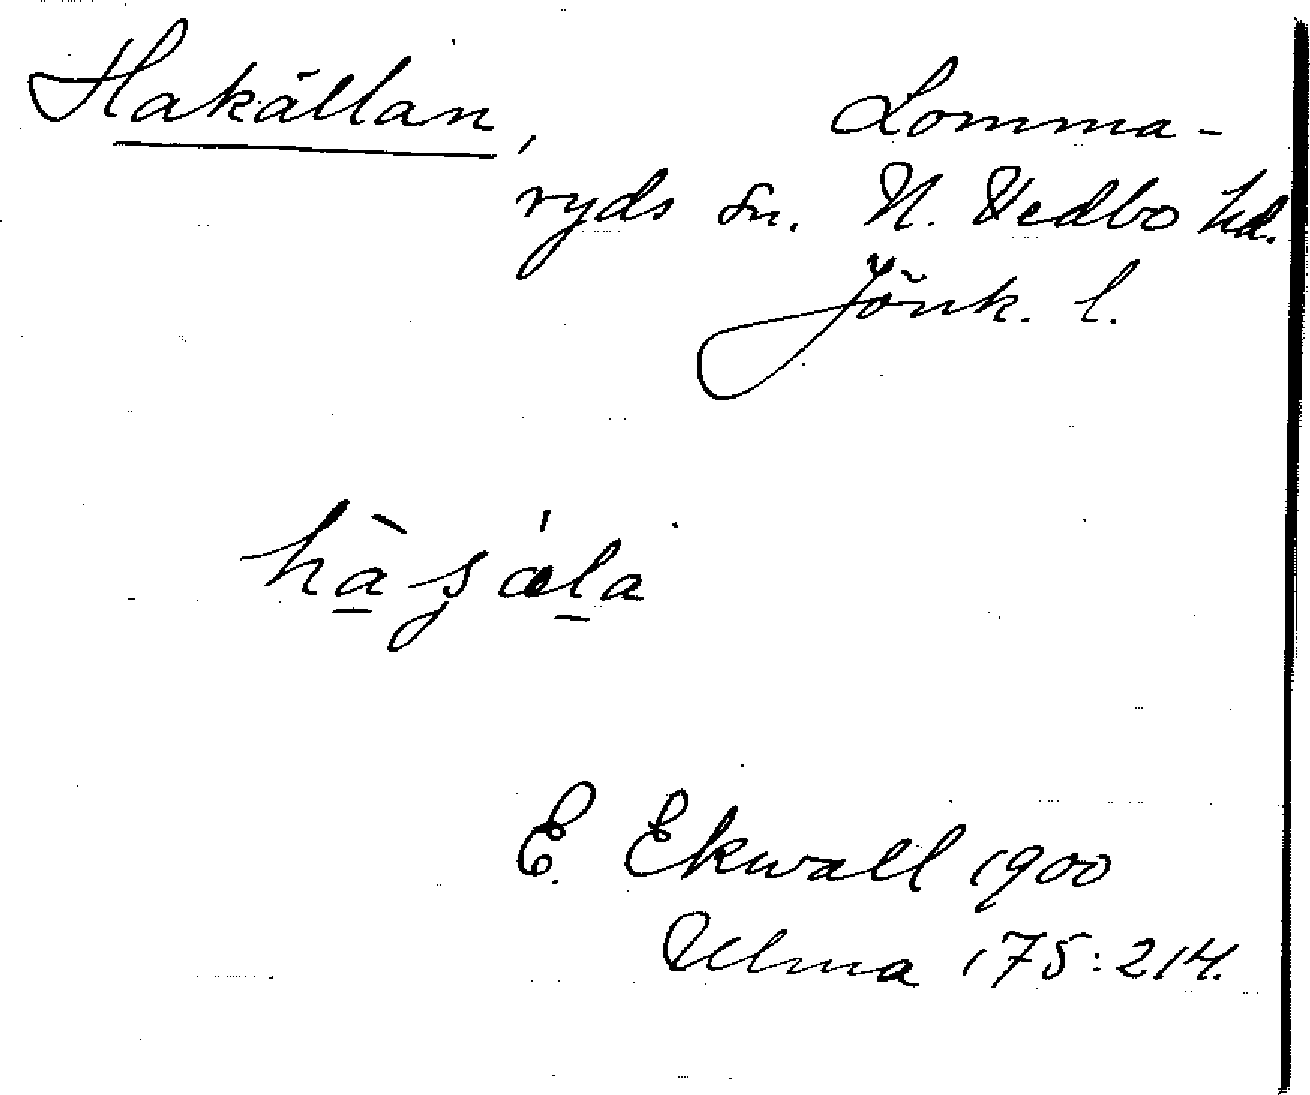 Hakällan, Lomma-
ryds sn. N. Vedbo hd.
Jönk. l.
E. Ekwall 1900
Ulma 175:214.